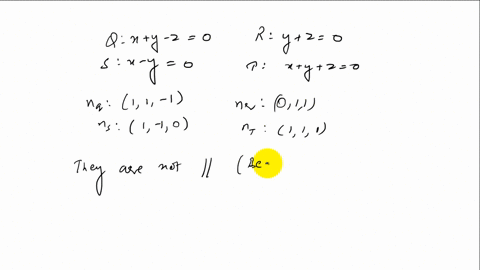 Q: x+y-2=0 R: y+2=0
S: x-y=0 T: x+y+2=0
nq: (1, 1, -1) nr: (0, 1, 1)
ns: (1, -1, 0) nT: (1, 1, 1)
They are not // (Bec